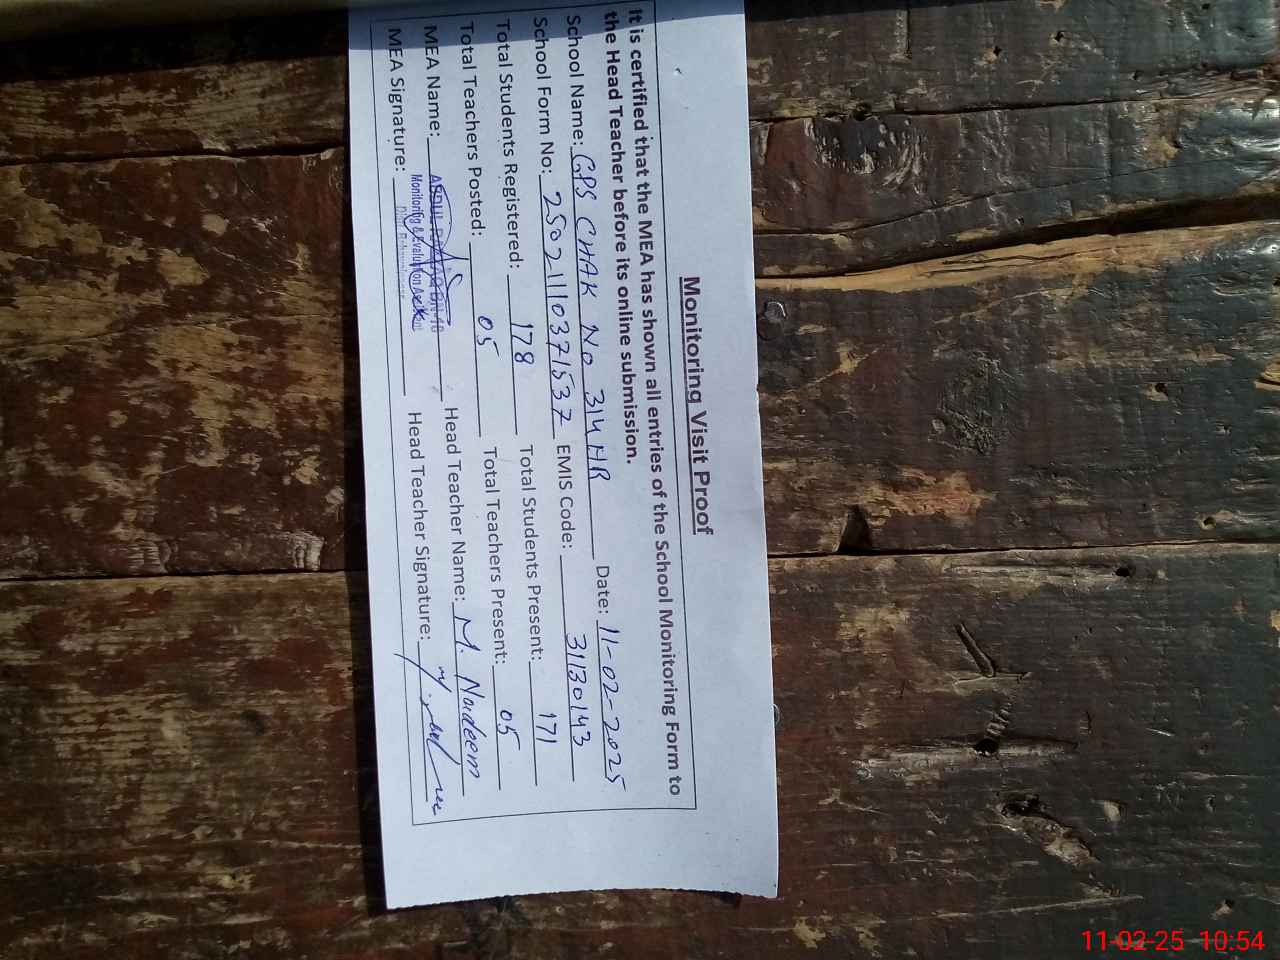 Monitoring Visit Proof
It is certified that the MEA has shown all entries of the School Monitoring Form to
the Head Teacher before its online submission.
School Name: GPS CHAK No 314HR Date: 11-02-2025
School Form No: 25021110371537 EMIS Code: 31130143
Total Students Registered: 178 Total Students Present: 171
Total Teachers Posted: 05 Total Teachers Present: 05
MEA Name: Head Teacher Name: M. Nadeem
Monitoring & Evaluation Assistant
MEA Signature: Head Teacher Signature:
11-02-25 10:54